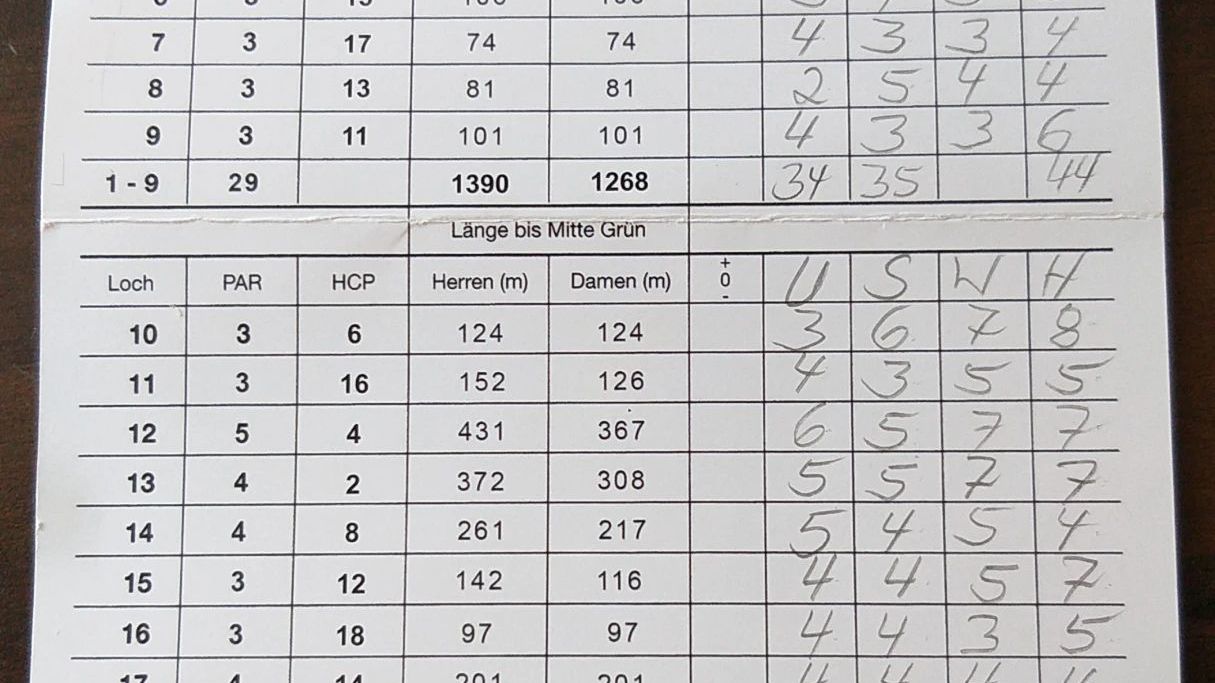 7 3 17 74 74 4 3 3 4
8 3 13 81 81 2 5 4 4
9 3 11 101 101 4 3 3 6
1 - 9 29 1390 1268 34 35 44
Länge bis Mitte Grün
Loch PAR HCP Herren (m) Damen (m) + 0 - U S W H
10 3 6 124 124 3 6 7 8
11 3 16 152 126 4 3 5 5
12 5 4 431 367 6 5 7 7
13 4 2 372 308 5 5 7 7
14 4 8 261 217 5 4 5 4
15 3 12 142 116 4 4 5 7
16 3 18 97 97 4 4 3 5
17 4 14 201 201